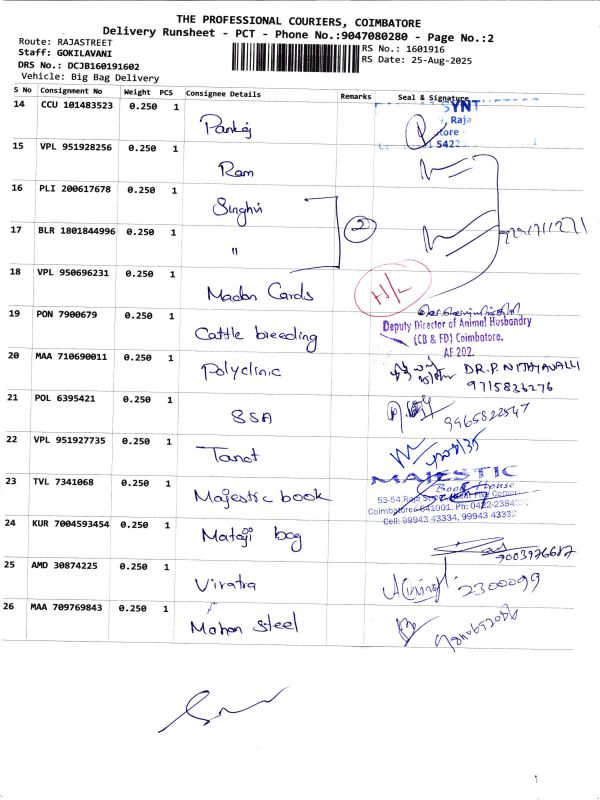 THE PROFESSIONAL COURIERS, COIMBATORE
Delivery Runsheet - PCT - Phone No.:9047080280 - Page No.:2
Route: RAJASTREET
Staff: GOKILAVANI
DRS No.: DCJB160191602
Vehicle: Big Bag Delivery
RS No.: 1601916
RS Date: 25-Aug-2025
S No Consignment No Weight PCS Consignee Details Remarks Seal & Signature
14 CCU 101483523 0.250 1 Pankaj
SYNT
Raja
15 VPL 951928256 0.250 1 Ram
16 PLI 200617678 0.250 1 Singhvi
2
17 BLR 1801844996 0.250 1 "
18 VPL 950696231 0.250 1 Madan Cards H/L
19 PON 7900679 0.250 1 Cattle breeding
Deputy Director of Animal Husbandry
(CB & FD) Coimbatore.
AF 202.
20 MAA 710690011 0.250 1 Polyclinic DR.P.NITHYAVALLI
9715836276
21 POL 6395421 0.250 1 SSA 9965822547
22 VPL 951927735 0.250 1 Tanot
23 TVL 7341068 0.250 1 Majestic book
MAJESTIC
Book House
53-54,Raja
Coimbatore - 641001. Ph: 0422-2394
Cell: 99943 43334, 99943 43332
24 KUR 7004593454 0.250 1 Mataji bag 9003926687
25 AMD 30874225 0.250 1 Viratra 2300099
26 MAA 709769843 0.250 1 Mohan Steel